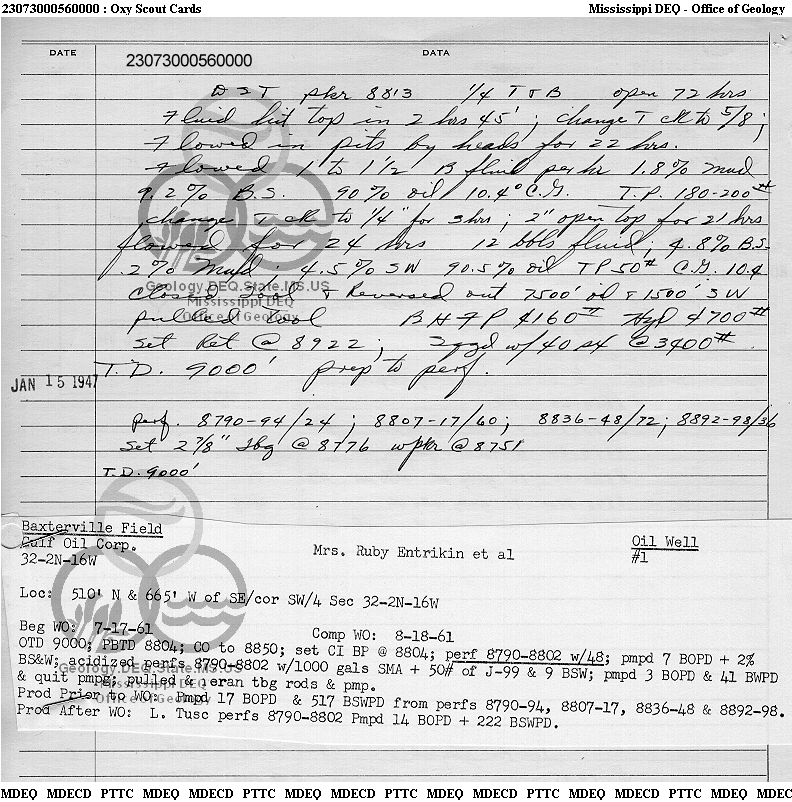 23073000560000 : Oxy Scout Cards Mississippi DEQ - Office of Geology
DATE DATA
23073000560000
DST pkr 8813 1/4 T & B open 72 hrs
Fluid hit top in 2 hrs 45'; change T ck to 5/8;
Flowed in pits by heads for 22 hrs.
Flowed 1 to 1 1/2 B fluid per hr 1.8% mud
9.2% B.S. 90% oil 10.4° C.G. T.P. 180-200#
change T ck to 1/4" for 3 hrs; 2" open top for 21 hrs
flowed for 24 hrs 12 bbls fluid; 4.8% B.S.
.2% Mud; 4.5% SW 90.5% oil TP 50# C.G. 10.4
Geology.DEQ.State.MS.US
closed Tool & Reversed out 7500' oil & 1500' SW
Mississippi DEQ
Office of Geology
pulled tool BHFP 4160# Hyd 4700#
Set Ret @ 8922; Sqzd w/40 sx @ 3400#
T.D. 9000' prep to perf.
JAN 15 1947
perf. 8790-94/24; 8807-17/60; 8836-48/72; 8892-98/36
Set 2 7/8" Tbg @ 8776 w pkr @ 8751
T.D. 9000'
Baxterville Field
Gulf Oil Corp. Mrs. Ruby Entrikin et al Oil Well
32-2N-16W #1
Loc: 510' N & 665' W of SE/cor SW/4 Sec 32-2N-16W
Beg WO: 7-17-61 Comp WO: 8-18-61
OTD 9000; PBTD 8804; CO to 8850; set CI BP @ 8804; perf 8790-8802 w/48; pmpd 7 BOPD + 2%
BS&W; acidized perfs 8790-8802 w/1000 gals SMA + 50# of J-99 & 9 BSW; pmpd 3 BOPD & 41 BWPD
Geology.DEQ.State.MS.US
& quit pmpg; pulled & reran tbg rods & pmp.
Mississippi DEQ
Prod Prior to WO: Pmpd 17 BOPD & 517 BSWPD from perfs 8790-94, 8807-17, 8836-48 & 8892-98.
Office of Geology
Prod After WO: L. Tusc perfs 8790-8802 Pmpd 14 BOPD + 222 BSWPD.
MDEQ MDECD PTTC MDEQ MDECD PTTC MDEQ MDECD PTTC MDEQ MDECD PTTC MDEQ MDECD PTTC MDEQ MDEC